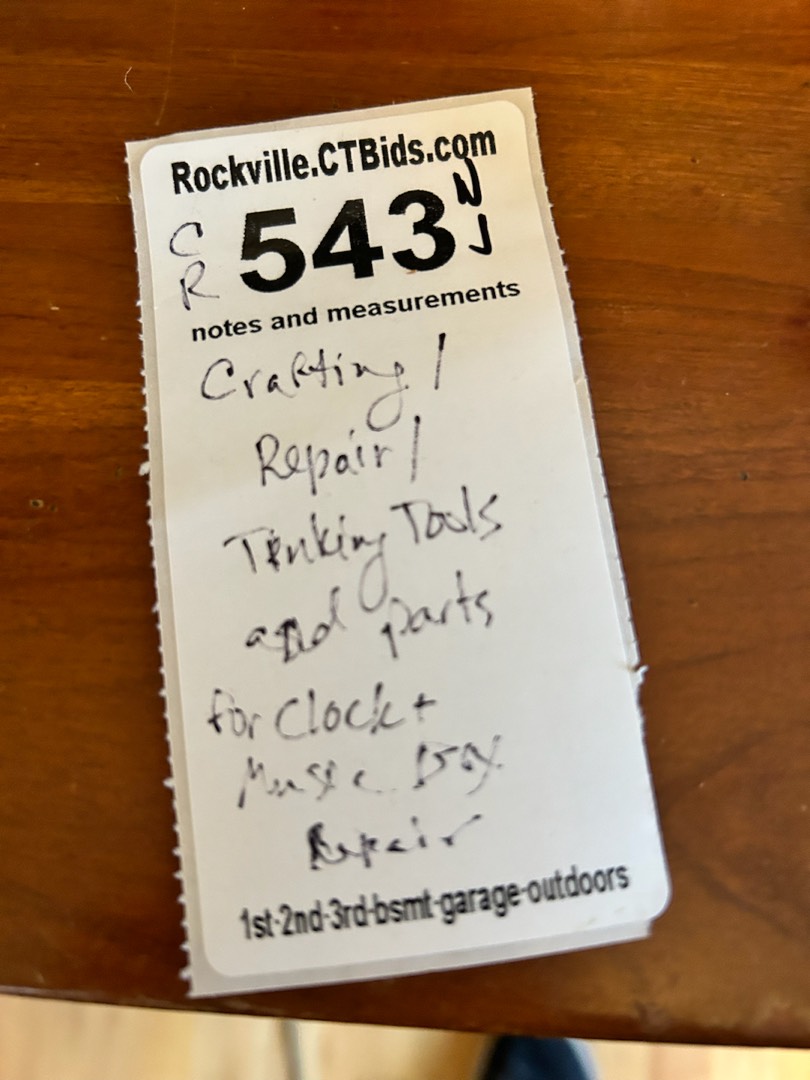 Rockville.CTBids.com
CR 543 NJ
notes and measurements
Crafting /
Repair /
Tinking Tools
and parts
for Clock +
Music Box
Repair
1st-2nd-3rd-bsmt-garage-outdoors